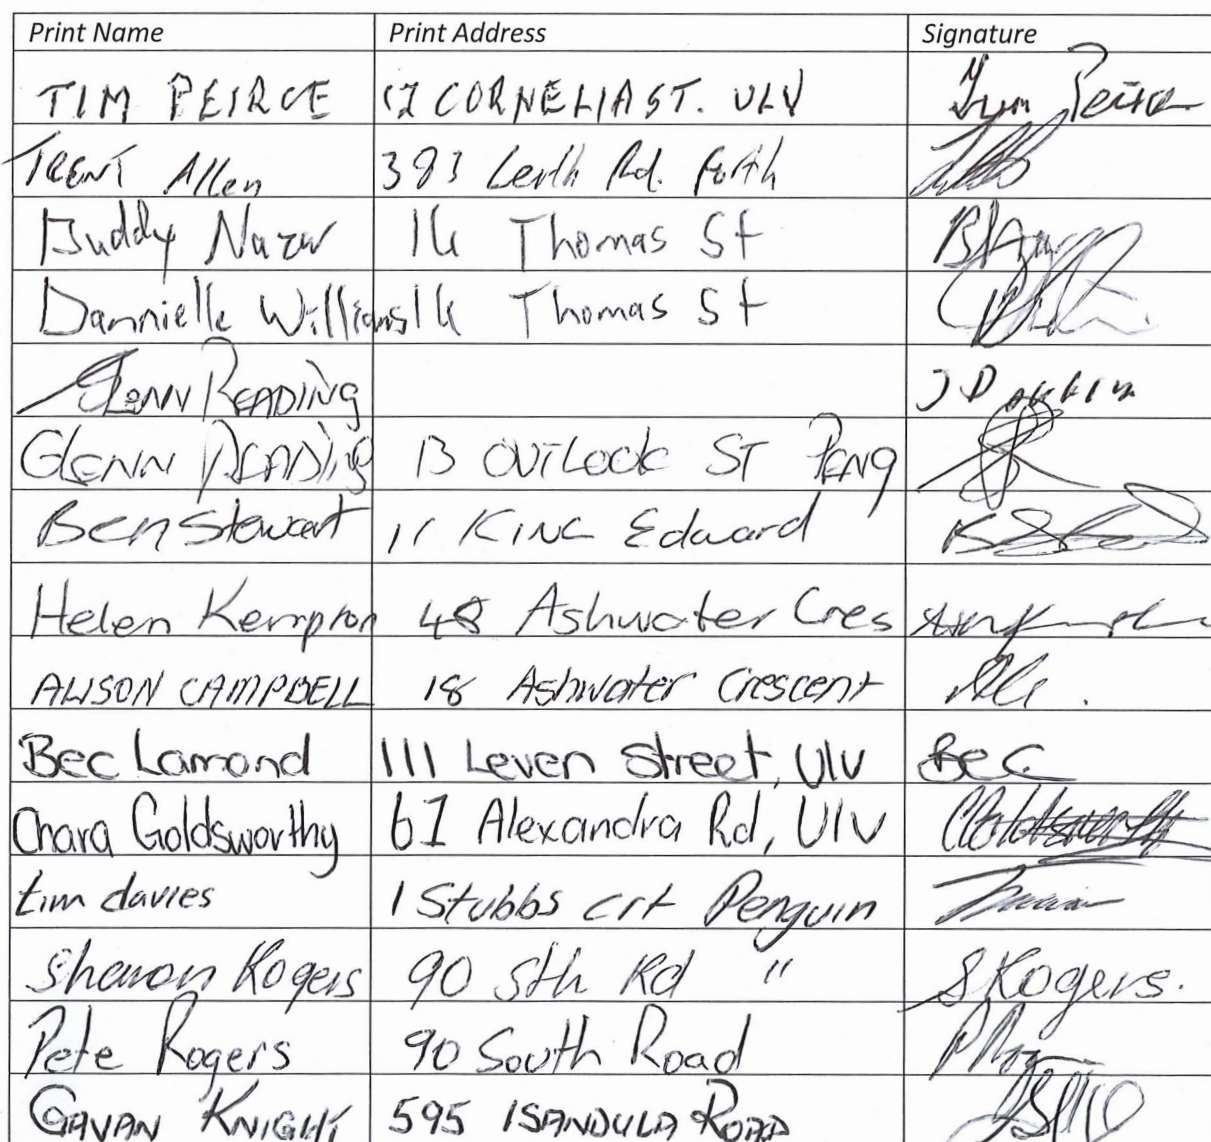 Print Name Print Address Signature
TIM PEIRCE 17 CORNELIA ST. ULV Tim Peirce
TRENT Allen 383 Leith Rd. Forth
Buddy 16 Thomas St
Dannielle Williams 16 Thomas St
GLENN READING
GLENN READING 13 OUTLOOK ST PENG
Ben Stewart 11 KING Edward
Helen Kempton 48 Ashwater Cres
ALISON CAMPBELL 18 Ashwater Crescent
Bec Lamond 111 Leven Street, Ulv Bec
Chara Goldsworthy 61 Alexandra Rd, Ulv CGoldsworthy
tim davies 1 Stubbs crt Penguin
Sharon Rogers 90 Sth Rd " S Rogers.
Pete Rogers 90 South Road
GAVAN KNIGHT 595 ISANDULA ROAD